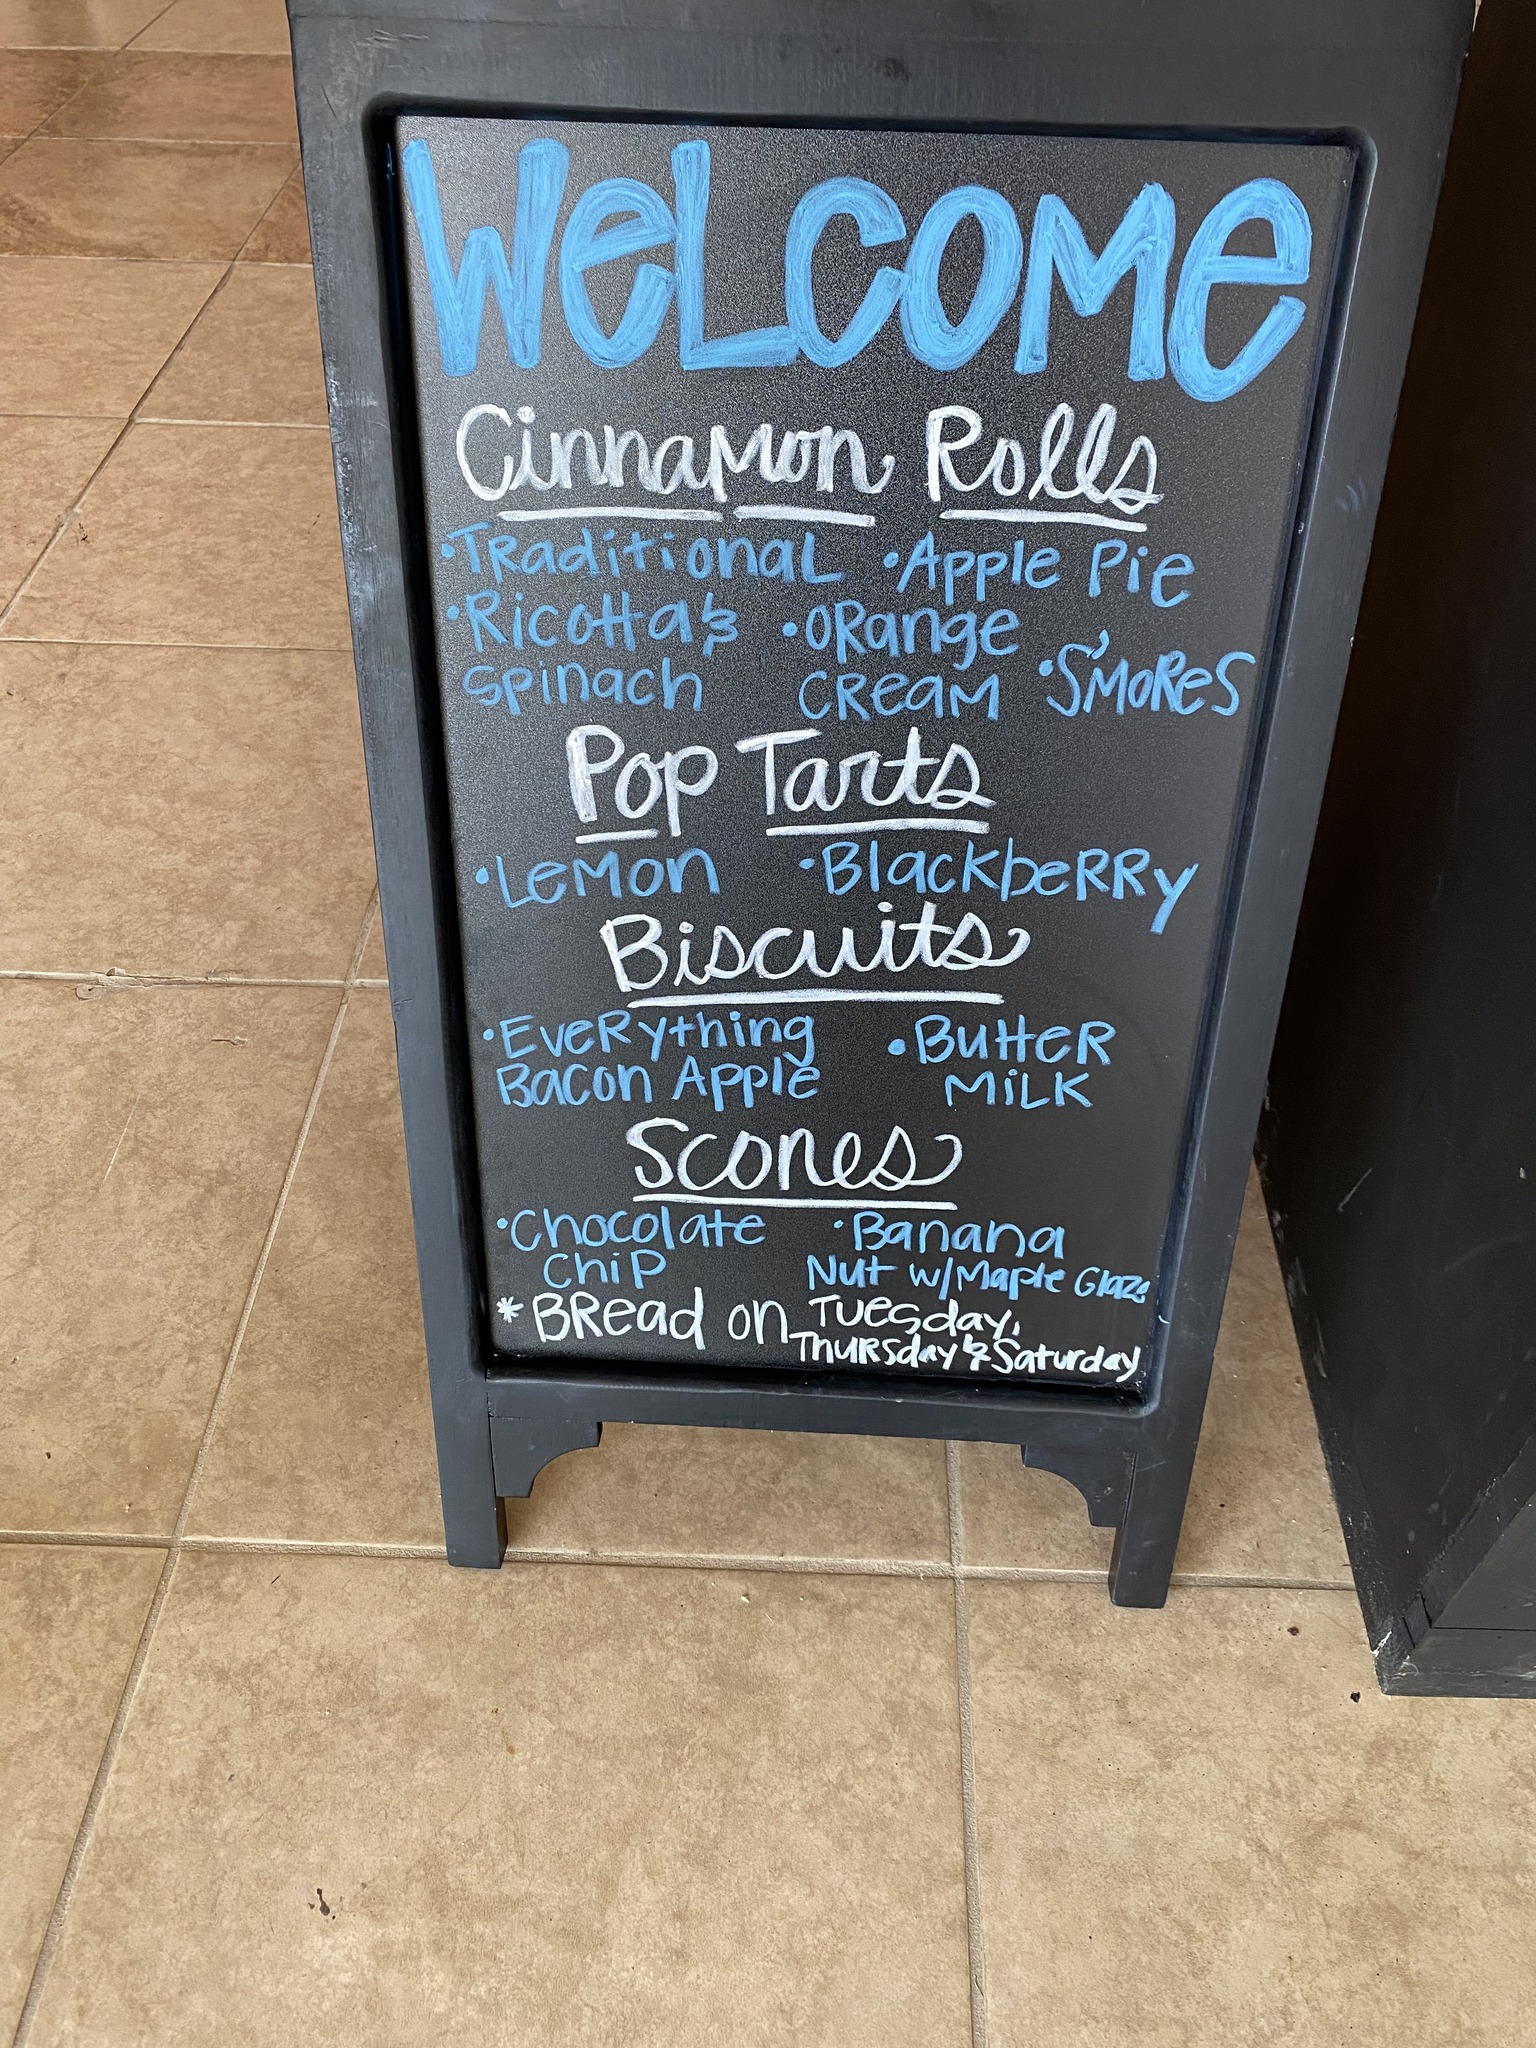 WeLCOMe
Cinnamon Rolls
•TRaditionaL •Apple Pie
•Ricotta & •ORange
spinach CReaM •S'MoReS
Pop Tarts
•LeMon •BlackbeRRy
Biscuits
•EveRything •ButteR
Bacon Apple MiLK
Scones
•Chocolate •Banana
ChiP Nut w/Maple Glaze
*BRead on Tuesday,
ThuRsday & Saturday